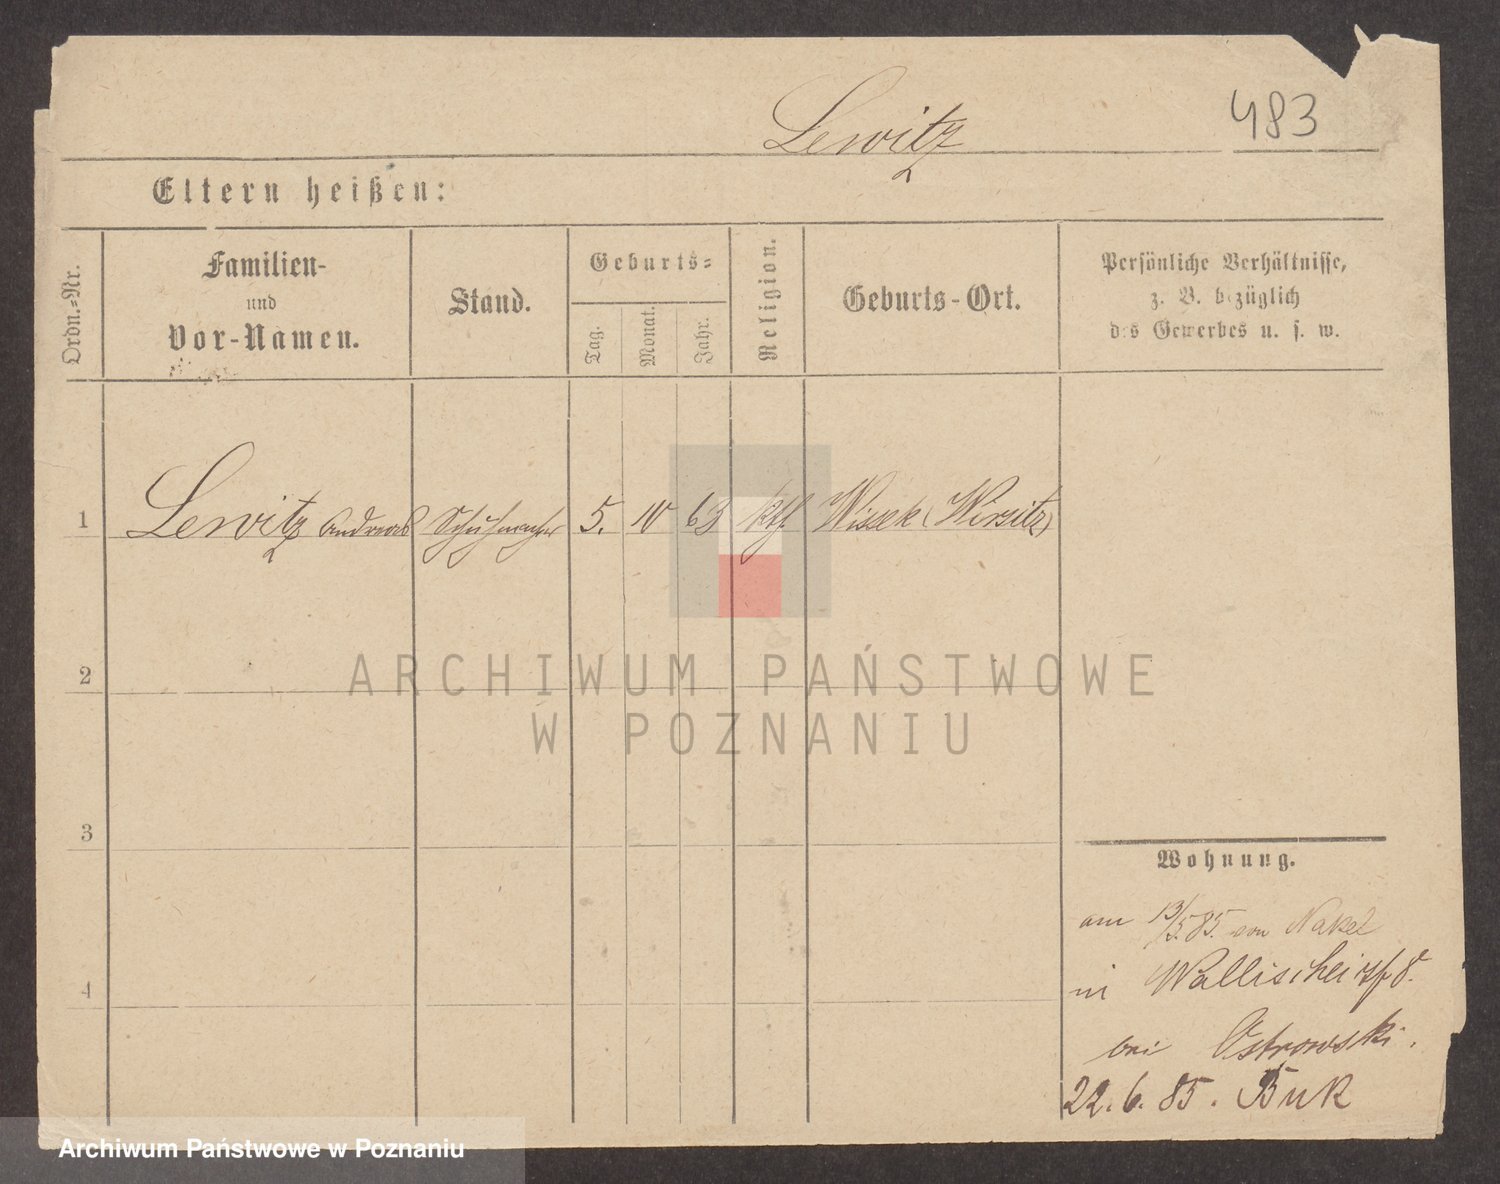 Lewitz
483
Eltern heißen:
Ordn.-Nr.
Familien-
und
Vor-Namen.
Stand.
Geburts-
Tag.
Monat.
Jahr.
Religion.
Geburts-Ort.
Persönliche Verhältnisse,
z. B. bezüglich
des Gewerbes u. s. w.
1 Lewitz Andreas Schuhmacher 5. IV 63 kth Wissek (Wirsitz)
2
3
4
Wohnung.
am 13/5.85. von Nakel
in Wallischei 8.
bei Ostrowski.
22.6.85. Buk
ARCHIWUM PAŃSTWOWE
W POZNANIU
Archiwum Państwowe w Poznaniu